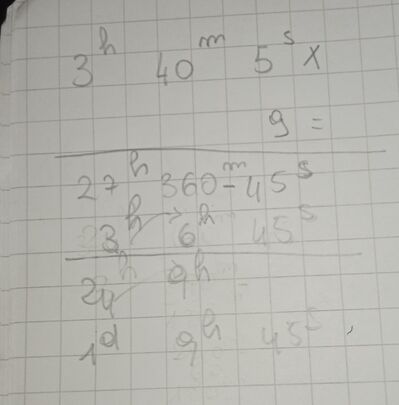 3h 40m 5s x
9 =
27h 360m 45s
3h 6h 45s
24h 9h
1d 9h 45s